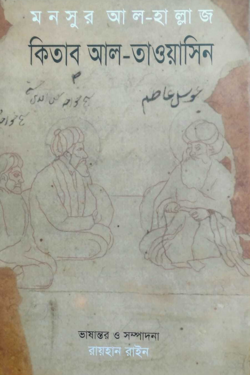 মনসুর আল-হাল্লাজ
কিতাব আল-তাওয়াসিন
ভাষান্তর ও সম্পাদনা
রায়হান রাইন